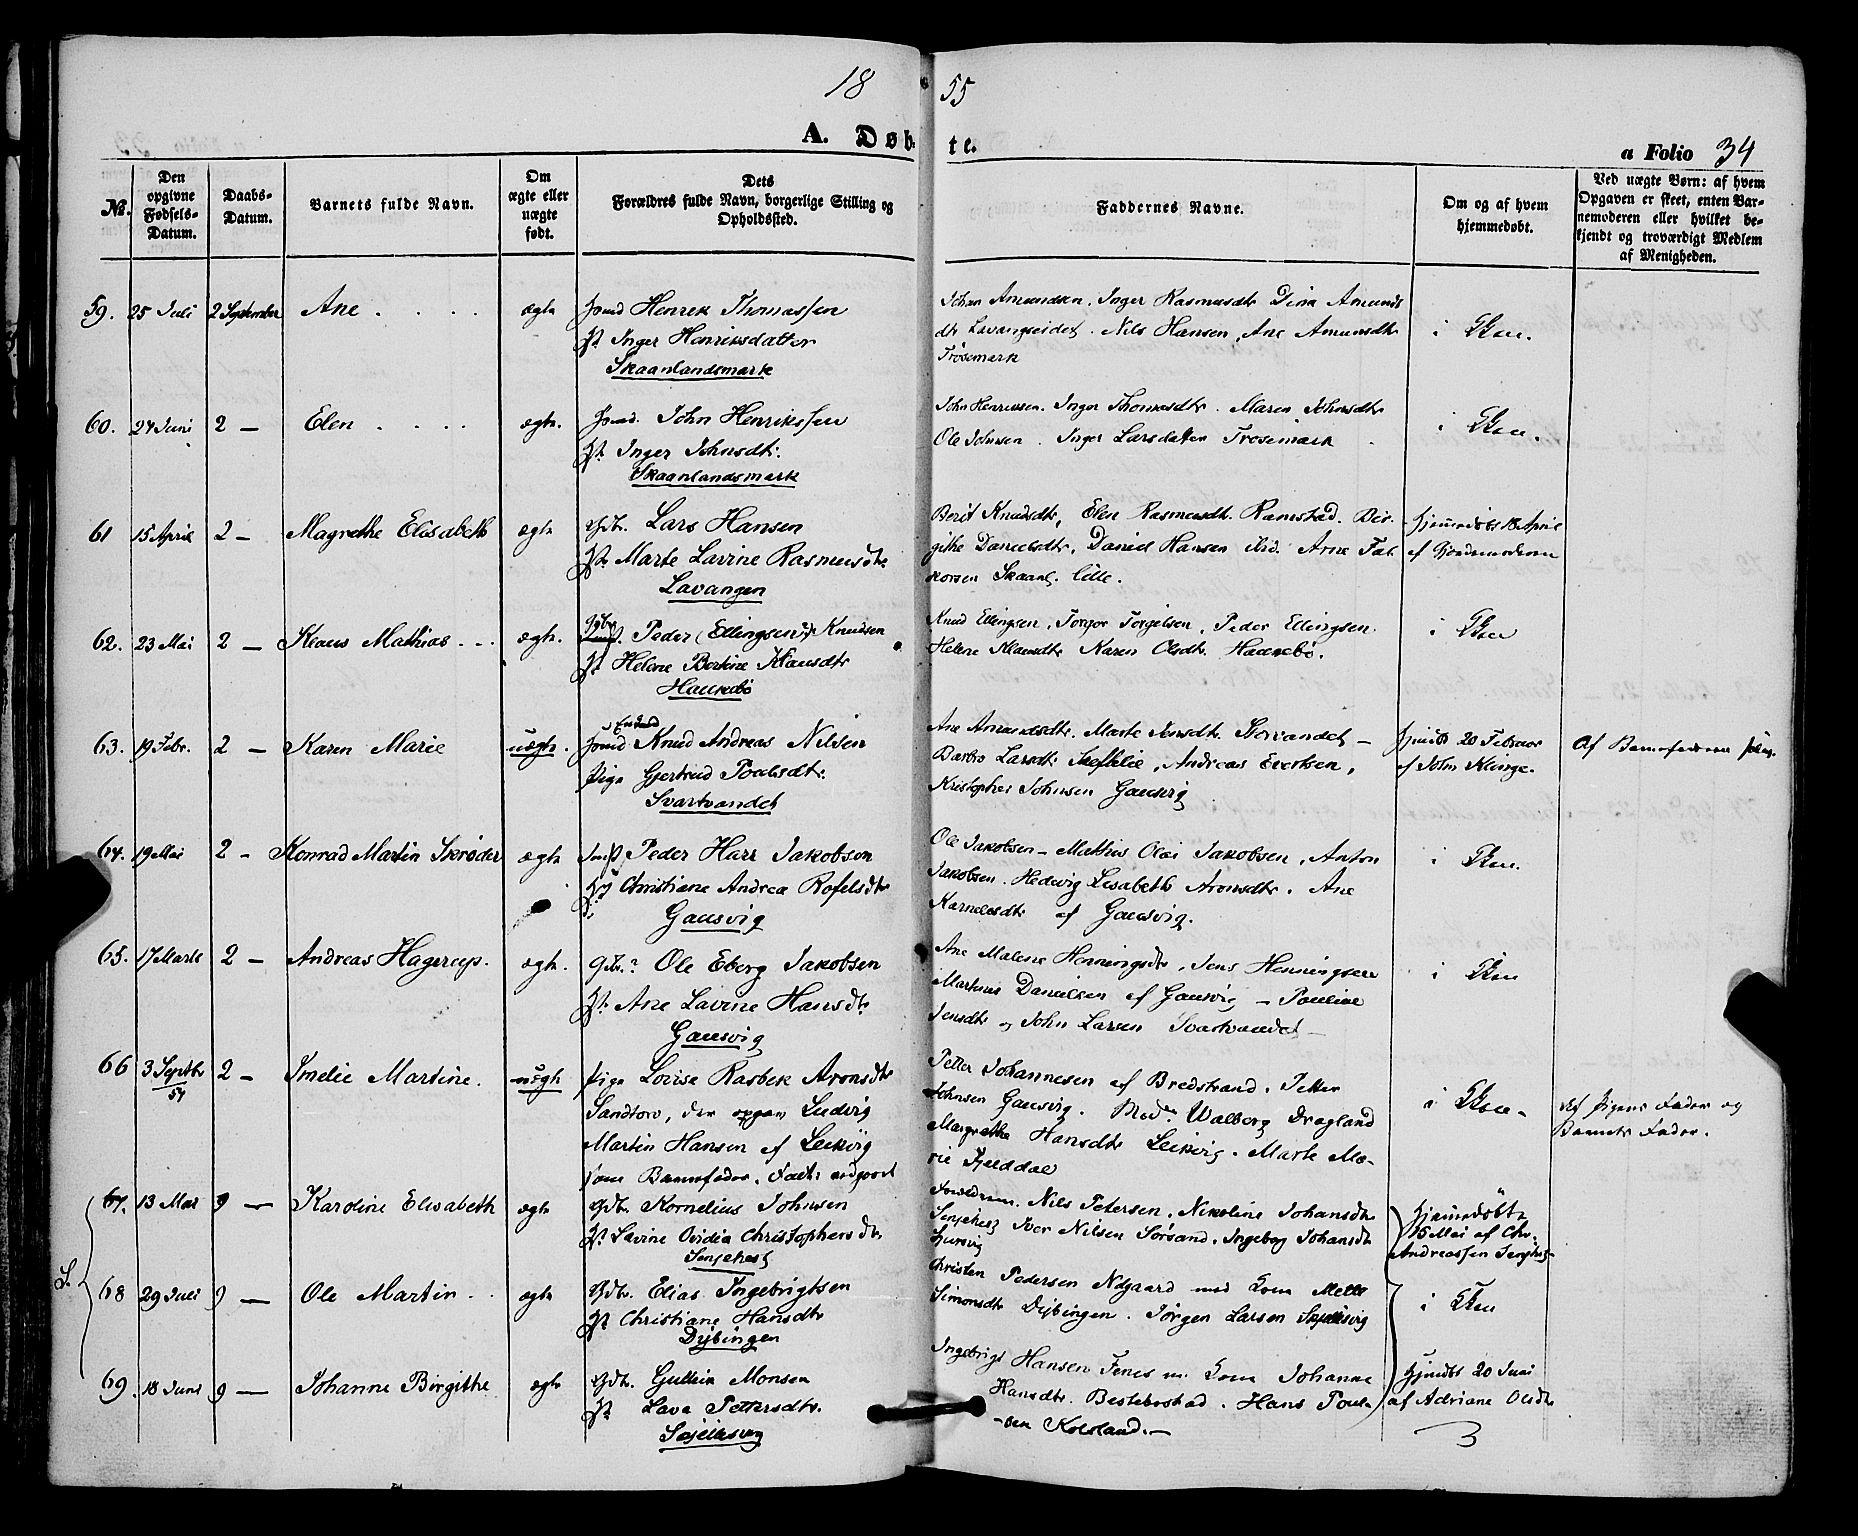 18 55
A. Døb- te.
a Folio 34
№.
Den opgivne Fødsels-Datum.
Daabs-Datum.
Barnets fulde Navn.
Om ægte eller uægte født.
Dets Forældres fulde Navn, borgerlige Stilling og Opholdssted.
Faddernes Navne.
Om og af hvem hjemmedøbt.
Ved uægte Børn: af hvem Opgaven er skeet, enten Barnemoderen eller hvilket bekjendt og troværdigt Medlem af Menigheden.
59. 25 Juli 2 September Ane . . . . ægte
Henrek Thomassen
Inger Henriksdatter
Skaanlandsmark
Johan Amundsen. Inger Rasmusdtr Dina Amunds
dtr Lavangseidet. Nils Hansen, Ane Amundsdtr
Trøsemark
i Kken.
60. 24 Juni 2 — Elen . . . . ægte.
John Henrikssen
Inger Johnsdtr.
Skaanlandsmark
John Henrikssen. Inger Thomasdtr. Maren Johnsdtr
Ole Johnsen. Inger Larsdatter Trøsemark
i Kken.
61 15 April 2 — Magrethe Elisabeth ægte
Gdbr. Lars Hansen
Marte Lavrine Rasmusdtr
Lavangen
Berit Knudsdtr, Elen Rasmusdtr. Ramstad. Bir-
githe Danielsdtr, Daniel Hansen ibid. Arne Fal-
korsen Skaanl. lille.
hjemmedøbt 18 April
af Gjordemoderen
62. 23 Mai 2 — Klaus Mathias . . . ægte.
Peder (Ellingsen) Knudsen
Helene Berkine Klausdtr
Haukebø
Knud Ellingsen, Torger Torgelsen, Peder Ellingsen.
Helene Klausdtr Karen Olsdtr Haukebø.
i Kken
63. 19 Febr. 2 — Karen Marie uægte.
Knud Andreas Nilsen
Pige Gjertrud Poulsdtr.
Svartvandet
Ane Amundsdtr. Marte Jensdtr. Svartvandet —
Barbro Larsdtr , Andreas Evertsen,
Kristopher Johnsen Gausvig
hjmdbt 20 Februar
af John Klinge.
Af Barnefaderen
64. 19 Mai 2 - Konrad Martin Skrøder ægte
Peder Harr Jakobsen
Christiane Andrea Rofelsdtr
Gausvig
Ole Jakobsen — Mathis Olai Jakobsen, Anton
Jakobsen. Hedevig Lisabeth Aronsdtr. Ane
Karnelsdtr af Gausvig.
i Kken.
65. 17 Marts 2 — Andreas Hagerup. ægte.
Gdbr. Ole Eberg Jakobsen
Ane Lavine Hansdtr
Gausvig
Ane Malene Henningsdtr, Jens Henningsen
Martinus Danielsen af Gausvig — Pauline
Jensdtr og John Larsen Svartvandet —
i Kken
66 3 Septbr 54 2 — Imelie Martine. uægte
Pige Lovise Rasbek Aronsdtr
Sandtorv, der opgav Ludvig
Martin Hansen af Leikvig
som Barnefader.
Petter Johannesen af Bredstrand. Petter
Johnsen Gausvig. Mad. Walborg Dragland
Margrethe Hansdtr Leikvig. Marte Ma-
rie Fjelddal
i Kken.
Af Pigens Fader og
Barnets Fader.
67. 13 Mai 9 — Karoline Elisabeth ægte
Gdbr. Kornelius Johnsen
Lavine Ovidia Christophersdtr
Senjehest
Forældrene. Nils Petersen. Nikoline Johansdtr
Senjehest Iver Nilsen Sørsand. Ingeborg Johansdtr
Hjemmedøbt
15 Mai af Chr.
Andreassen Senjehest
68 29 Juli 9 — Ole Martin . . ægte
Gdbr. Elias Ingebrigtsen
Christiane Hansdtr
Dybingen
Christen Pedersen Nygaard med Kone Mette
Simonsdtr Dybingen. Jørgen Larsen
i Kken
69. 18 Juni 9 — Johanne Birgithe ægte
Gdbr. Gullik Monsen
Lava Pettersdtr.
Ingebrigt Hansen Fenes m. Kone Johanne
Hansdtr. Bestebostad. Hans Poul-
sen Kolsland. —
hjmdbt 20 Juni
af Adriane Olsdtr
3